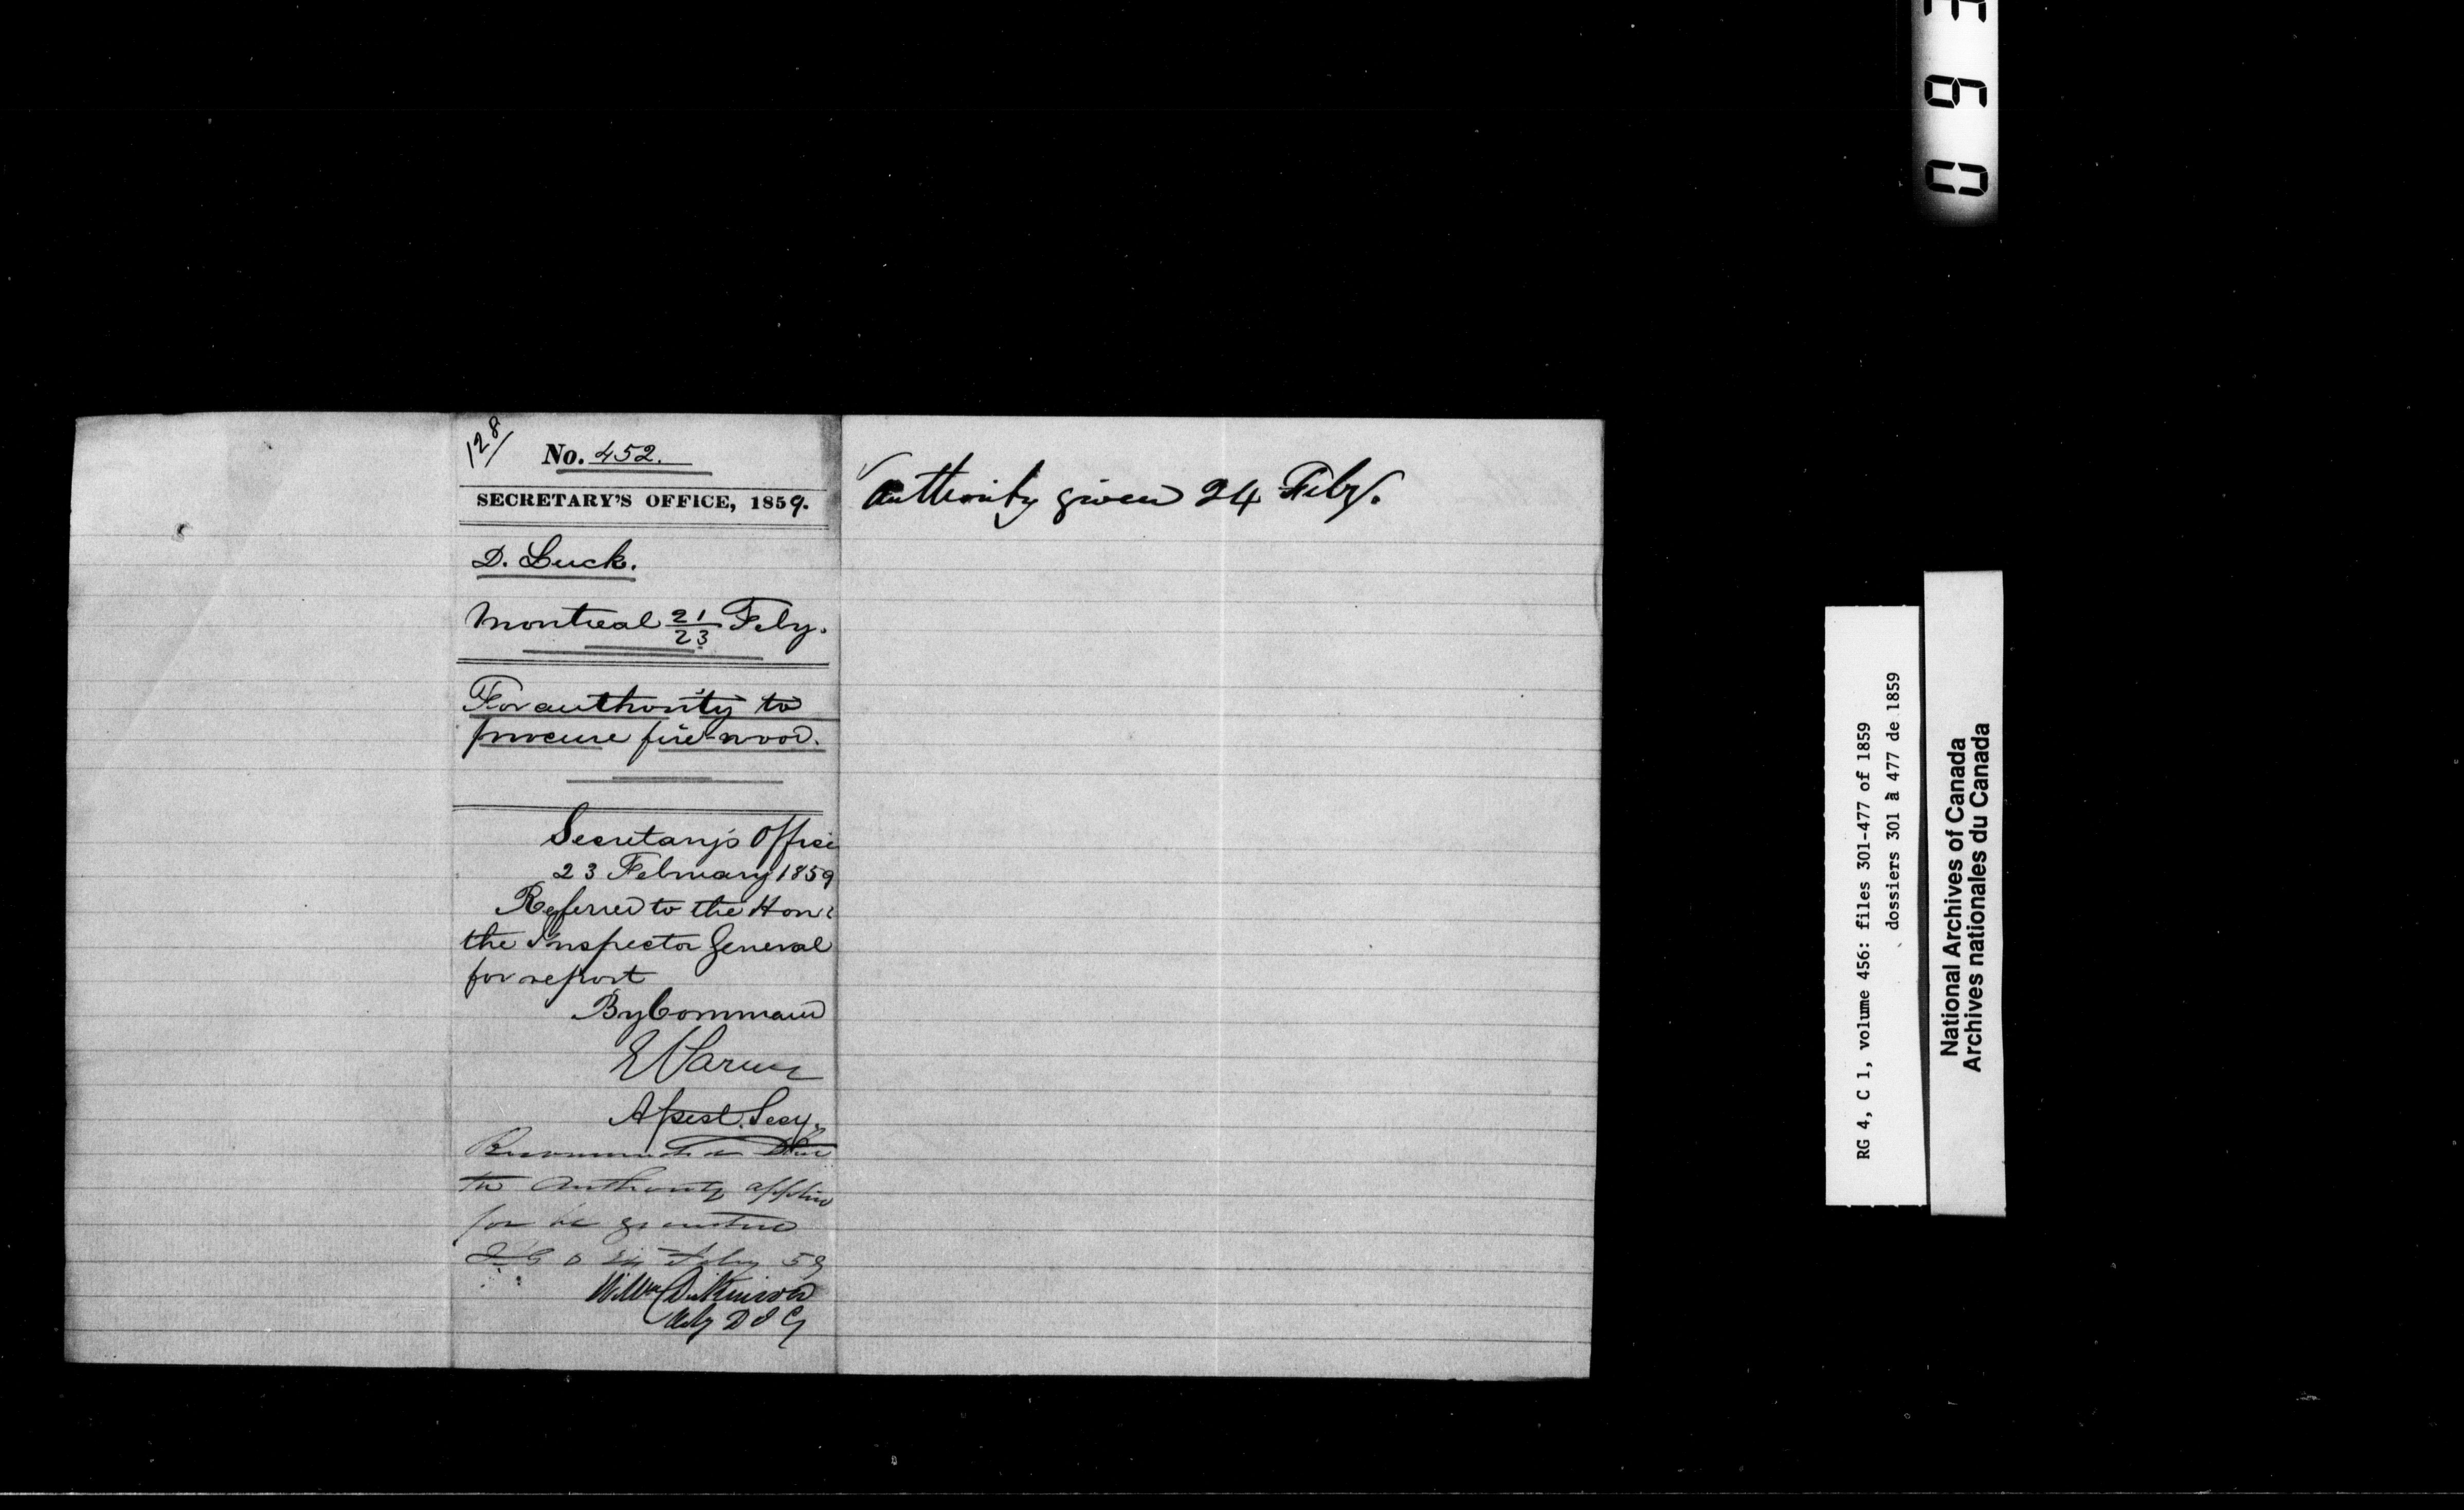 128/
No. 452.
SECRETARY'S OFFICE, 1859.
D. Luck.
Montreal 21/23 Feby.
For authority to
procure fire-wood.
Secretary's Office
23 February 1859
Referred to the Hon:
the Inspector General
for report
By Command
E Parent
Asst. Secy.
the Authority applied
for be granted
Feby 59
Wm Dickinson
Actg D I G
Authority given 24 Feby.
RG 4, C 1, volume 456: files 301-477 of 1859
dossiers 301 à 477 de 1859
National Archives of Canada
Archives nationales du Canada
0 6 3